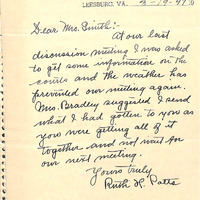 LEESBURG, VA. 3-19-47
Dear Mrs. Smith:-
At our last
discussion meeting I was asked
to get some information on the
courts and the weather has
prevented our meeting again.
Mrs. Bradley suggested I send
what I had gotten to you as
you were getting all of it
together and not wait for
our next meeting.
Yours truly
Ruth H. Potts